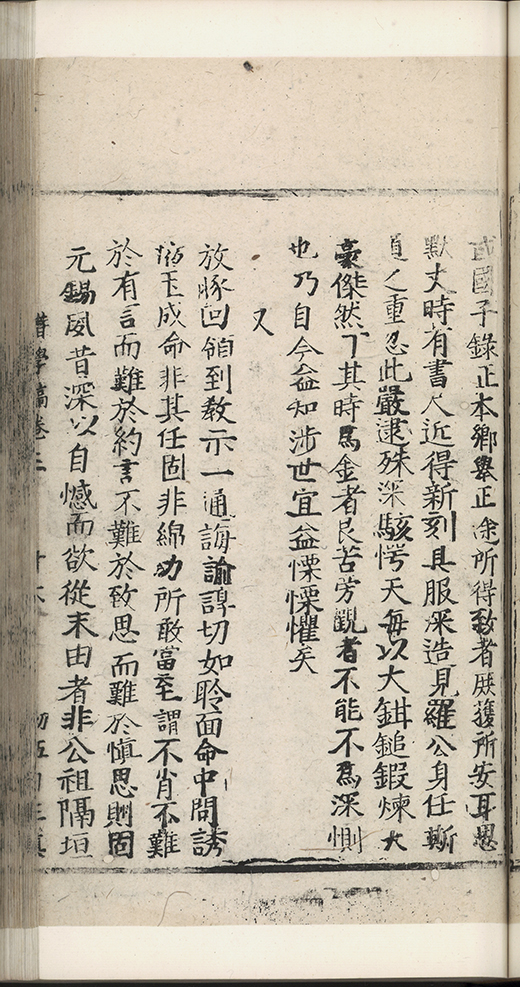 國子錄正本鄉舉正途所得致者厥獲所安耳思
默丈時有書尺近得新刻具服深造見羅公身任斯
道之重忽此嚴逮殊深駭愕天每以大鉗鎚鍛煉大
豪傑然丁其時為金者良苦旁觀者不能不為深惻
也乃自今益知涉世宜益慄慄懼矣
又
放豚回領到教示一通誨諭諄切如聆面命中間誘
玉成命非其任固非綿幼所敢當至謂不肖不難
於有言而難於約言不難於致思而難於慎思則固
元錫夙昔深以自憾而欲從末由者非公祖隔垣
學稿卷